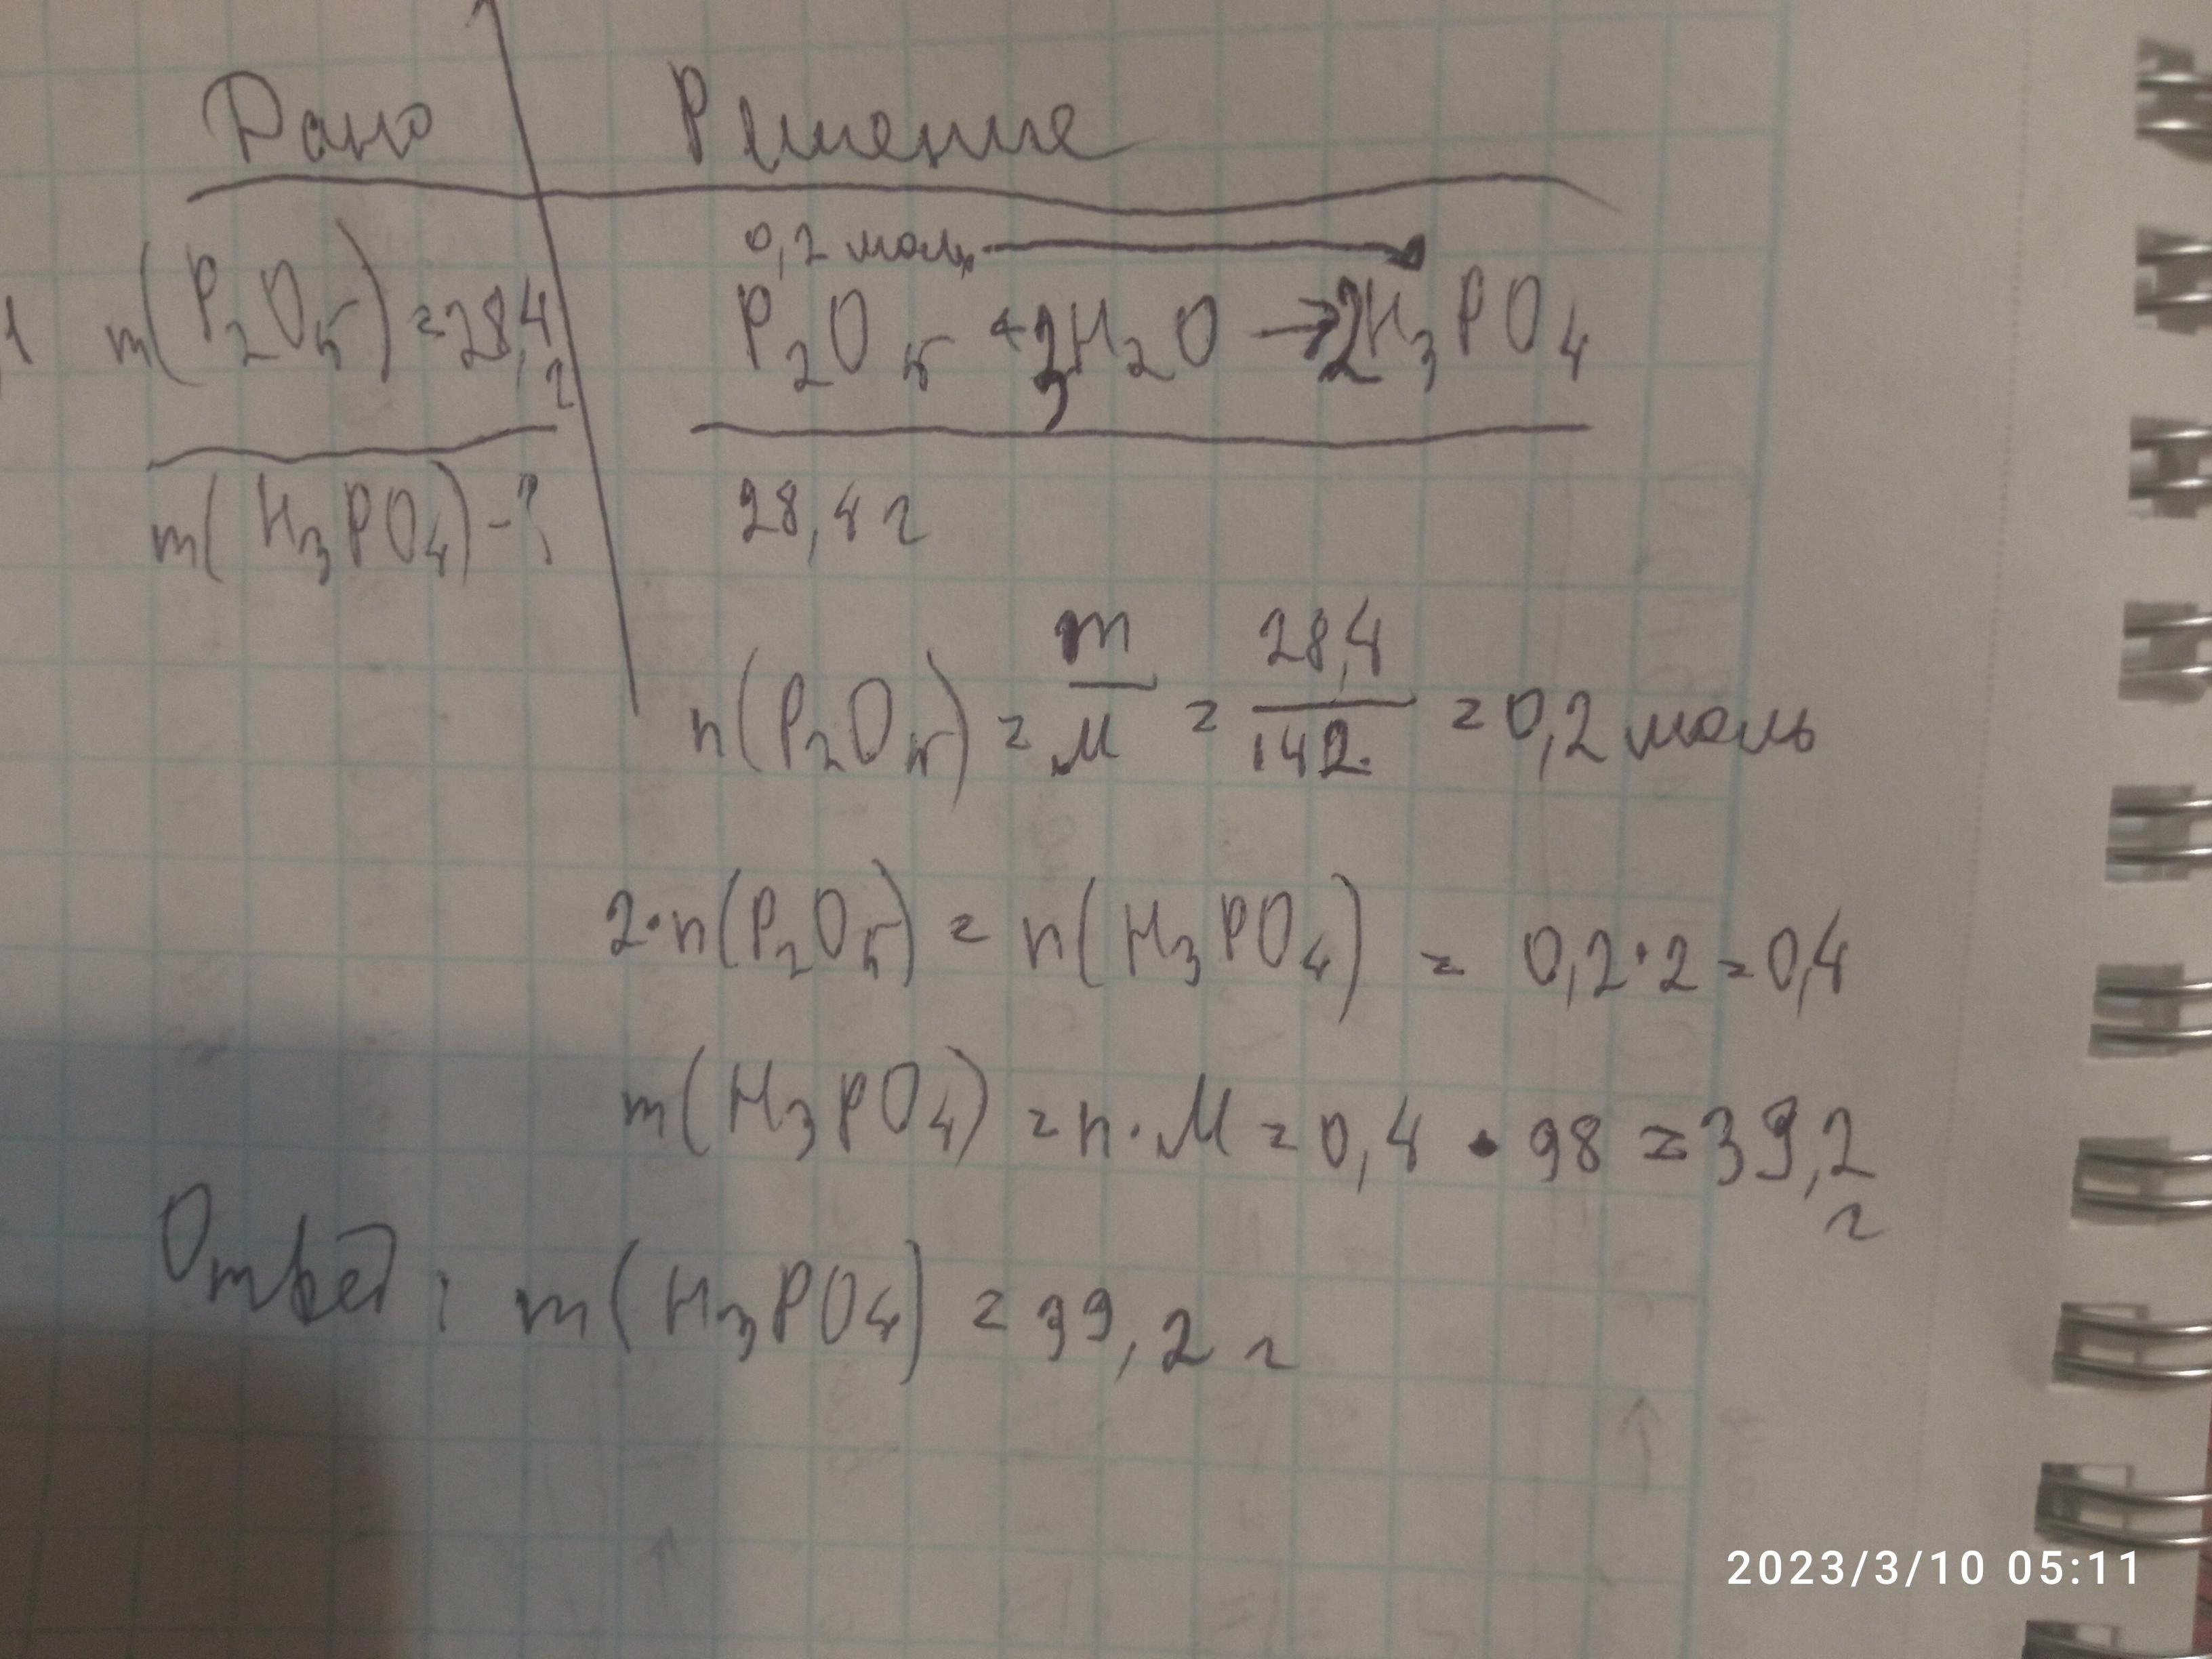 Дано Решение
m(P₂O₅) = 28,4 г
0,2 моль
P₂O₅ + 3H₂O → 2H₃PO₄
m(H₃PO₄) - ?
28,4 г
n(P₂O₅) = m/M = 28,4/142 = 0,2 моль
2·n(P₂O₅) = n(H₃PO₄) = 0,2·2 = 0,4
m(H₃PO₄) = n·M = 0,4 · 98 = 39,2 г
Ответ: m(H₃PO₄) = 39,2 г
2023/3/10 05:11